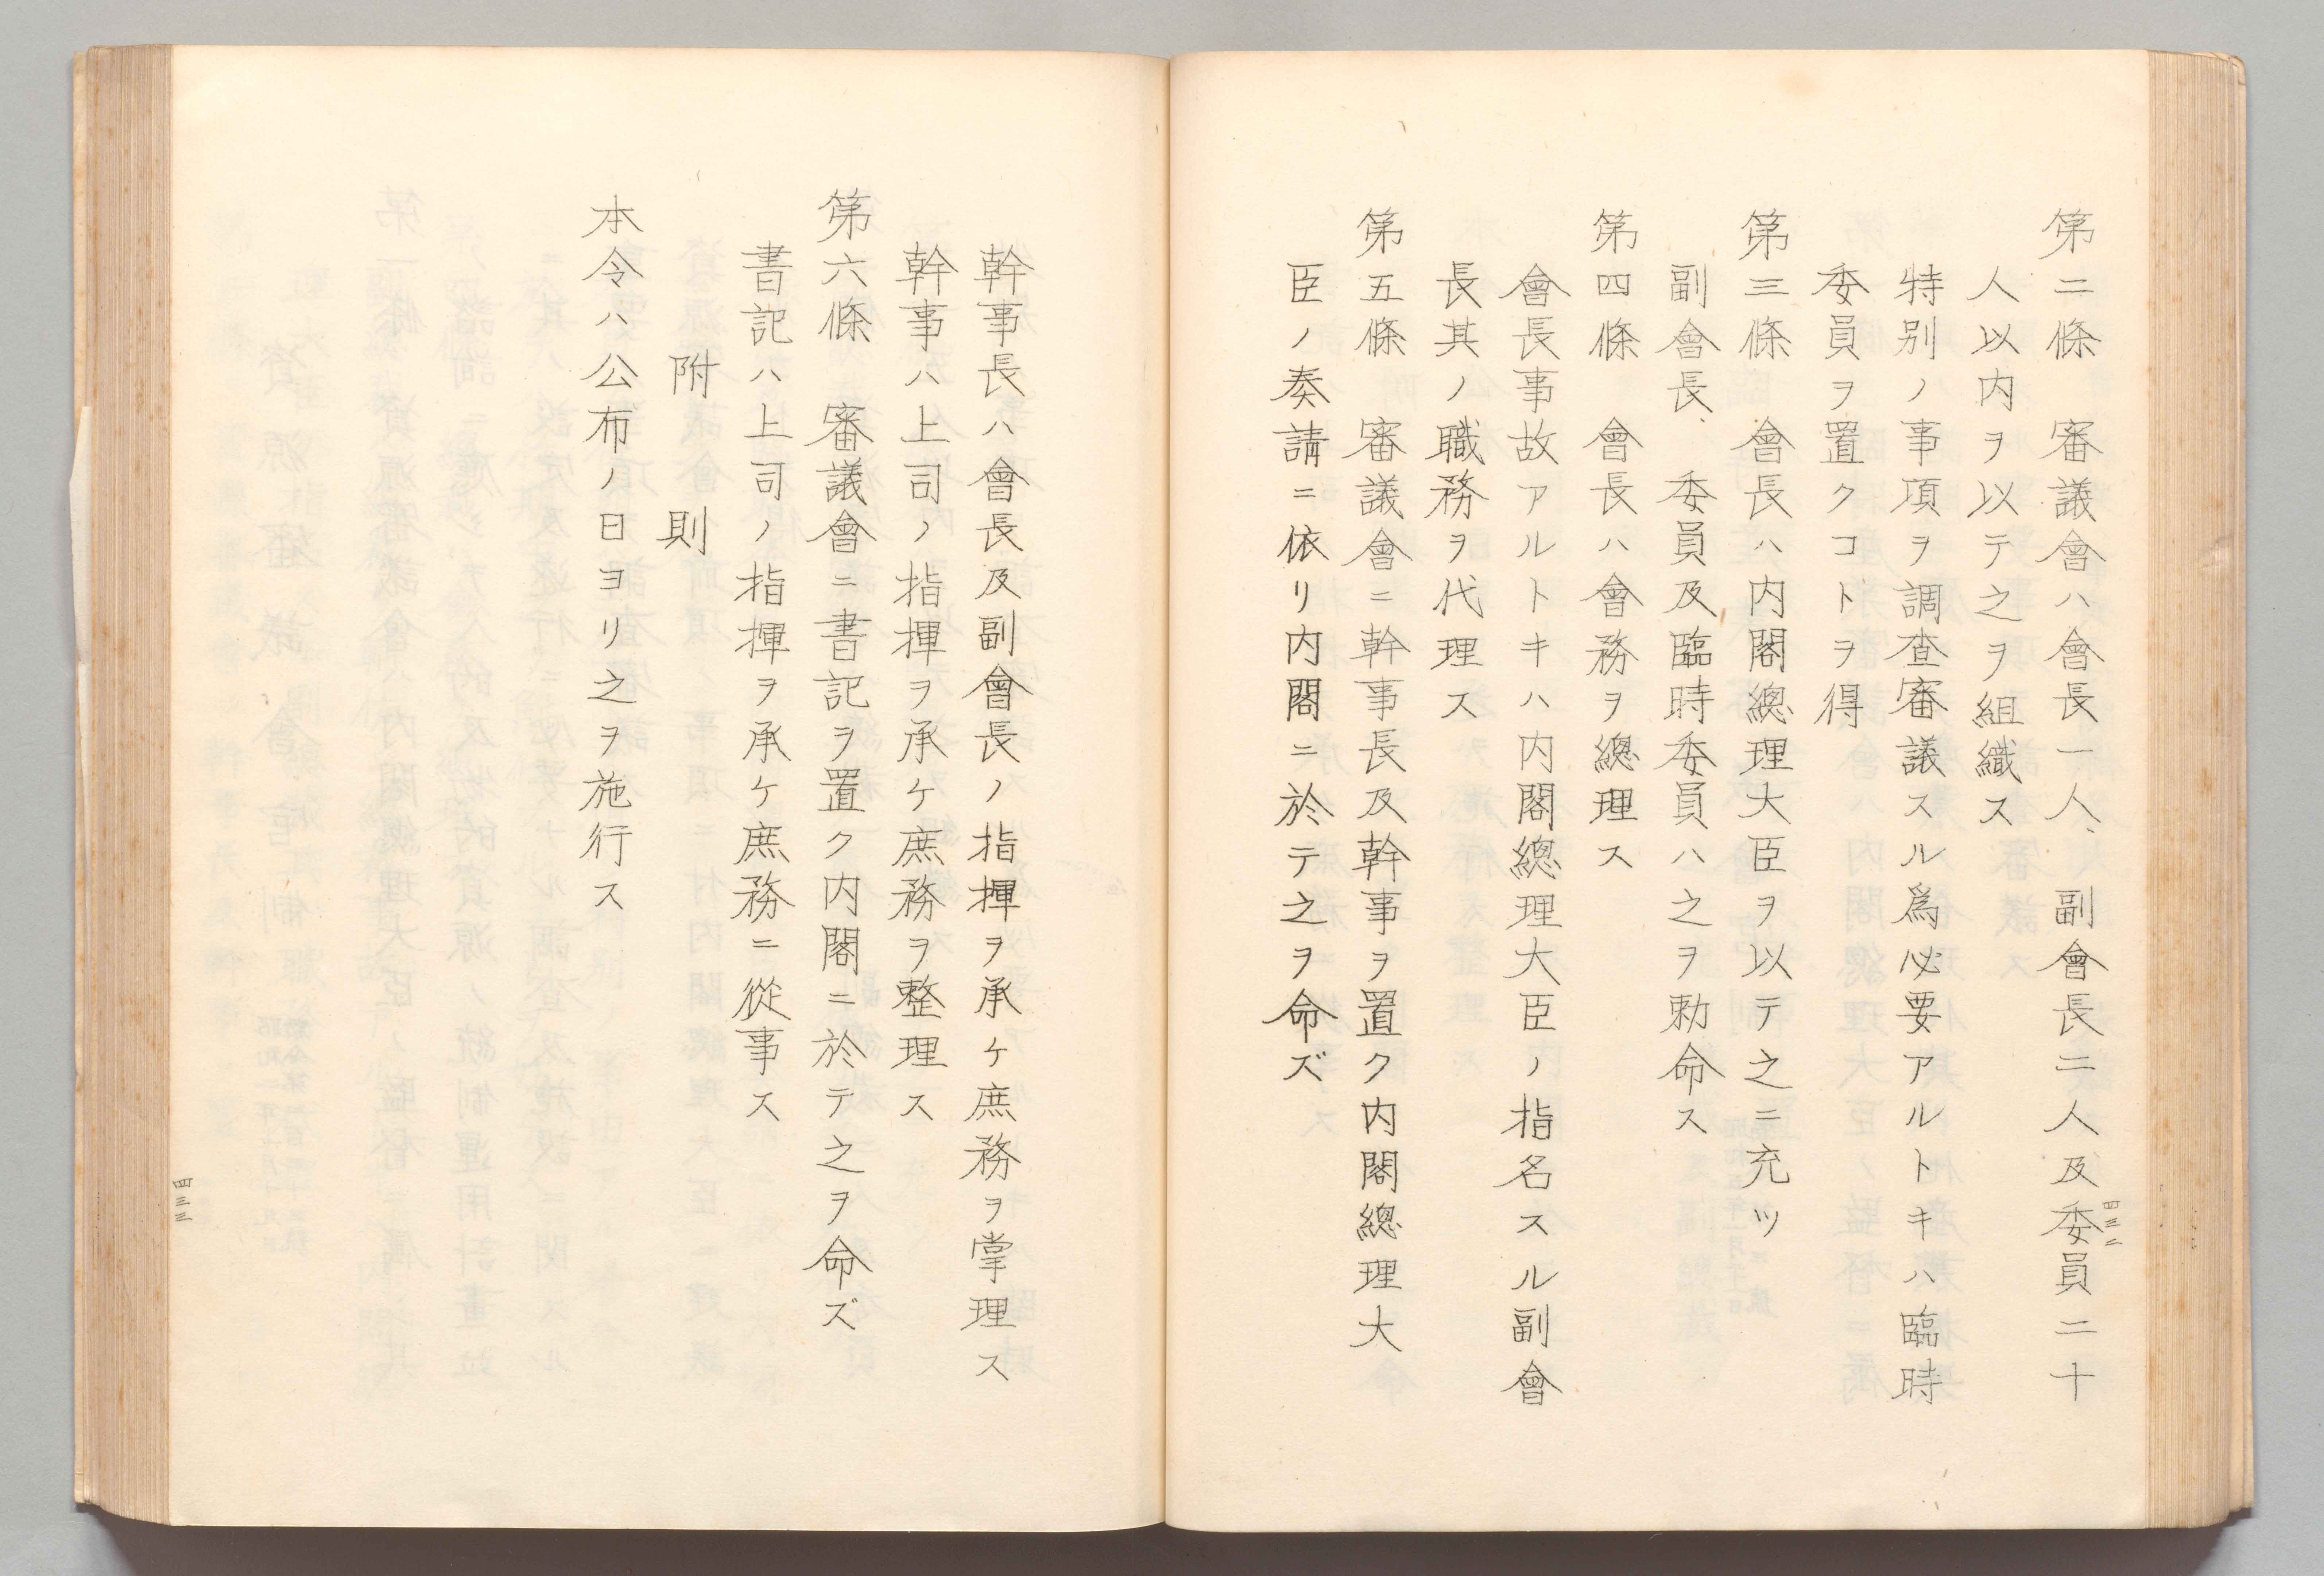 第二條　審議會ハ會長一人、副會長二人及委員二十
人以内ヲ以テ之ヲ組織ス
特別ノ事項ヲ調査審議スル爲必要アルトキハ臨時
委員ヲ置クコトヲ得
第三條　會長ハ内閣總理大臣ヲ以テ之ニ充ツ
副會長、委員及臨時委員ハ之ヲ勅命ス
第四條　會長ハ會務ヲ總理ス
會長事故アルトキハ内閣總理大臣ノ指名スル副會
長其ノ職務ヲ代理ス
第五條　審議會ニ幹事長及幹事ヲ置ク内閣總理大
臣ノ奏請ニ依リ内閣ニ於テ之ヲ命ズ
四三二
幹事長ハ會長及副會長ノ指揮ヲ承ケ庶務ヲ掌理ス
幹事ハ上司ノ指揮ヲ承ケ庶務ヲ整理ス
第六條　審議會ニ書記ヲ置ク内閣ニ於テ之ヲ命ズ
書記ハ上司ノ指揮ヲ承ケ庶務ニ從事ス
附則
本令ハ公布ノ日ヨリ之ヲ施行ス
四三三